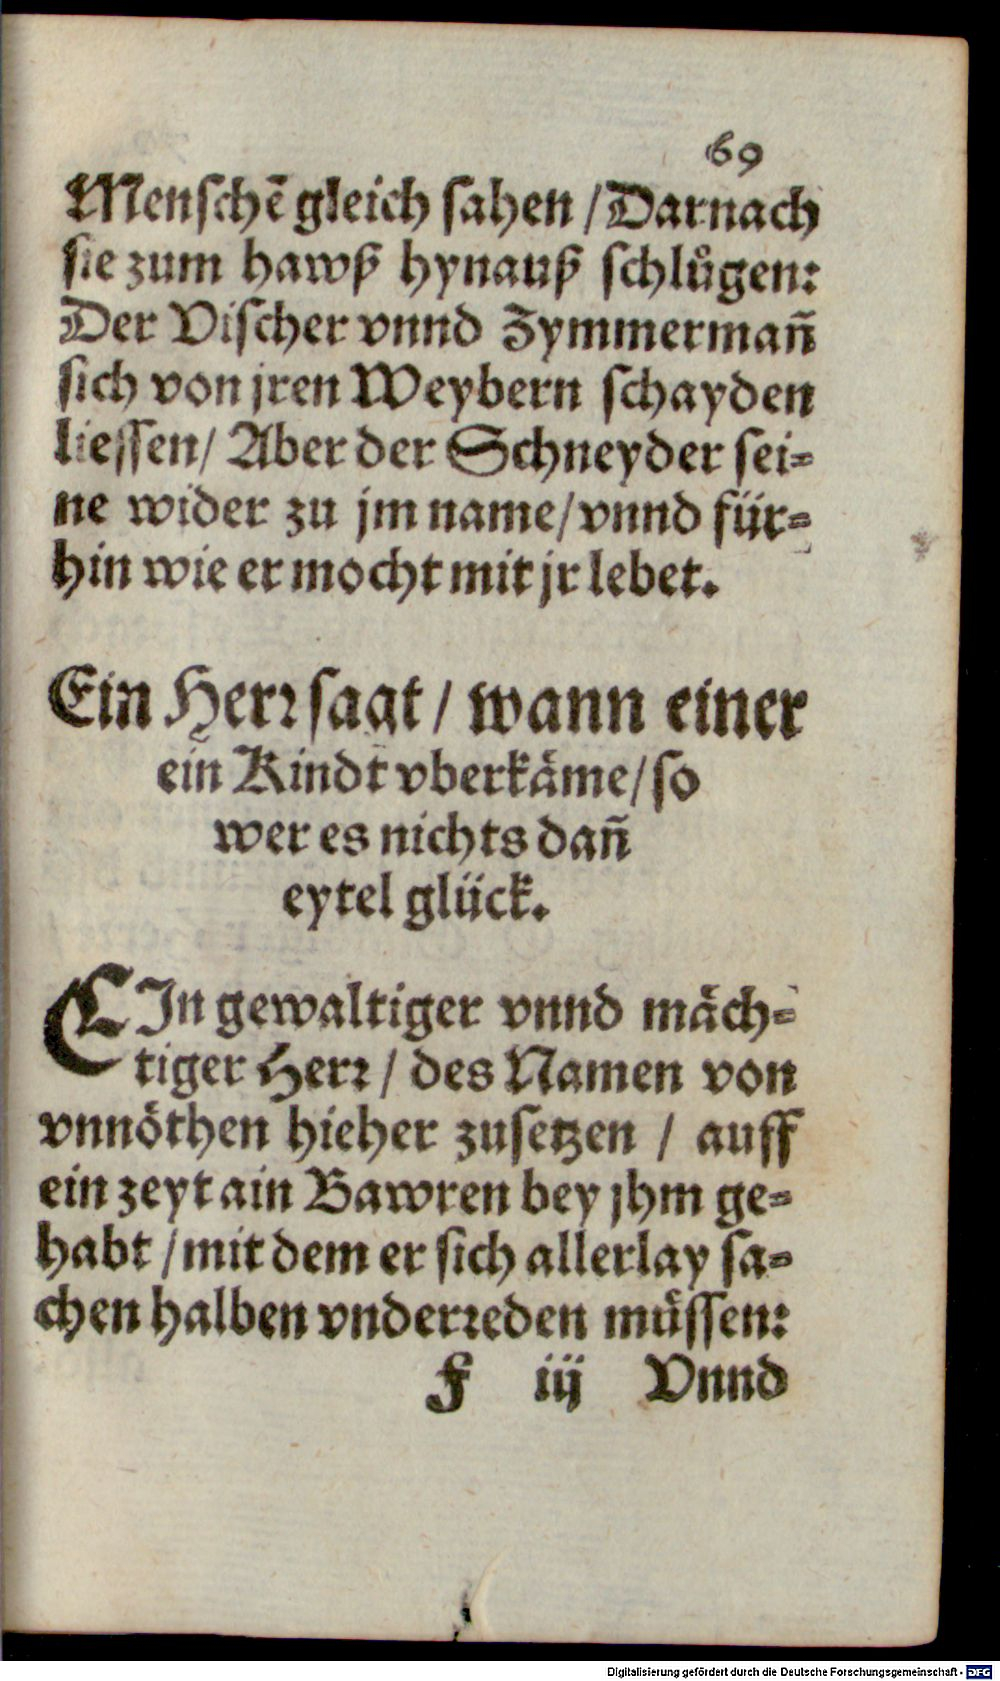 69
Menschē gleich sahen / Darnach
sie zum hawß hynauß schlůgen:
Der Vischer vnnd Zymmermañ
sich von jren Weybern schayden
liessen / Aber der Schneyder sei-
ne wider zu jm name / vnnd für-
hin wie er mocht mit jr lebet.
Ein Herr sagt / wann einer
ein Kindt vberkäme / so
wer es nichts dañ
eytel glück.
EIn gewaltiger vnnd mäch-
tiger Herr / des Namen von
vnnöthen hieher zusetzen / auff
ein zeyt ain Bawren bey jhm ge-
habt / mit dem er sich allerlay sa-
chen halben vnderreden müssen:
F iij Vnnd
Digitalisierung gefördert durch die Deutsche Forschungsgemeinschaft - DFG